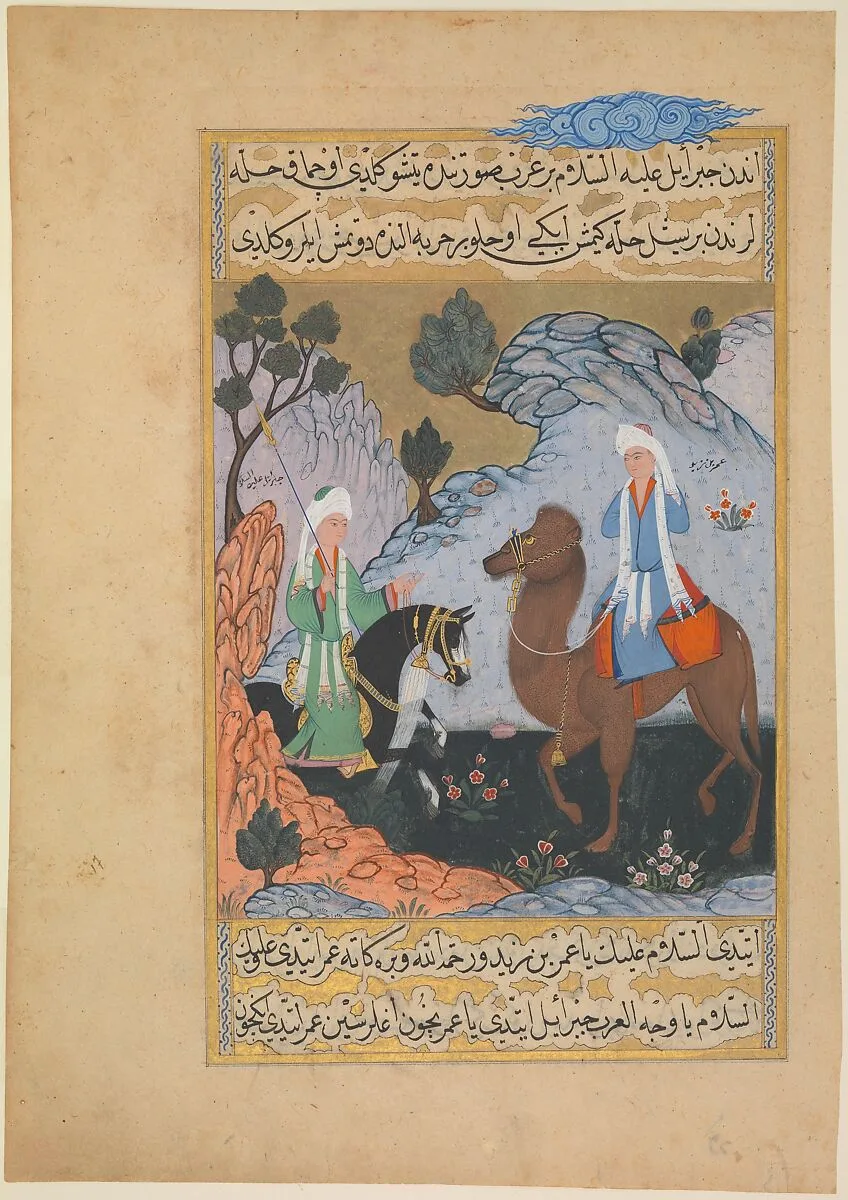 اندن جبرائل عليه السلام بر عرب صورتنده يتشو كلدى اوچماق حله
لرندن بر يشل حله كيمش ايكى اوجلو بر حربه النده دوتمش ايلرو كلدى
جبرائل عليه السلام
عمر بن زيد
ايتدى السلام عليك يا عمر بن زيد ورحمة الله وبركاته عمر ايتدى وعليك
السلام يا وجه العرب جبرائل ايتدى يا عمر نچون اغلرسين عمر ايتدى نيچون